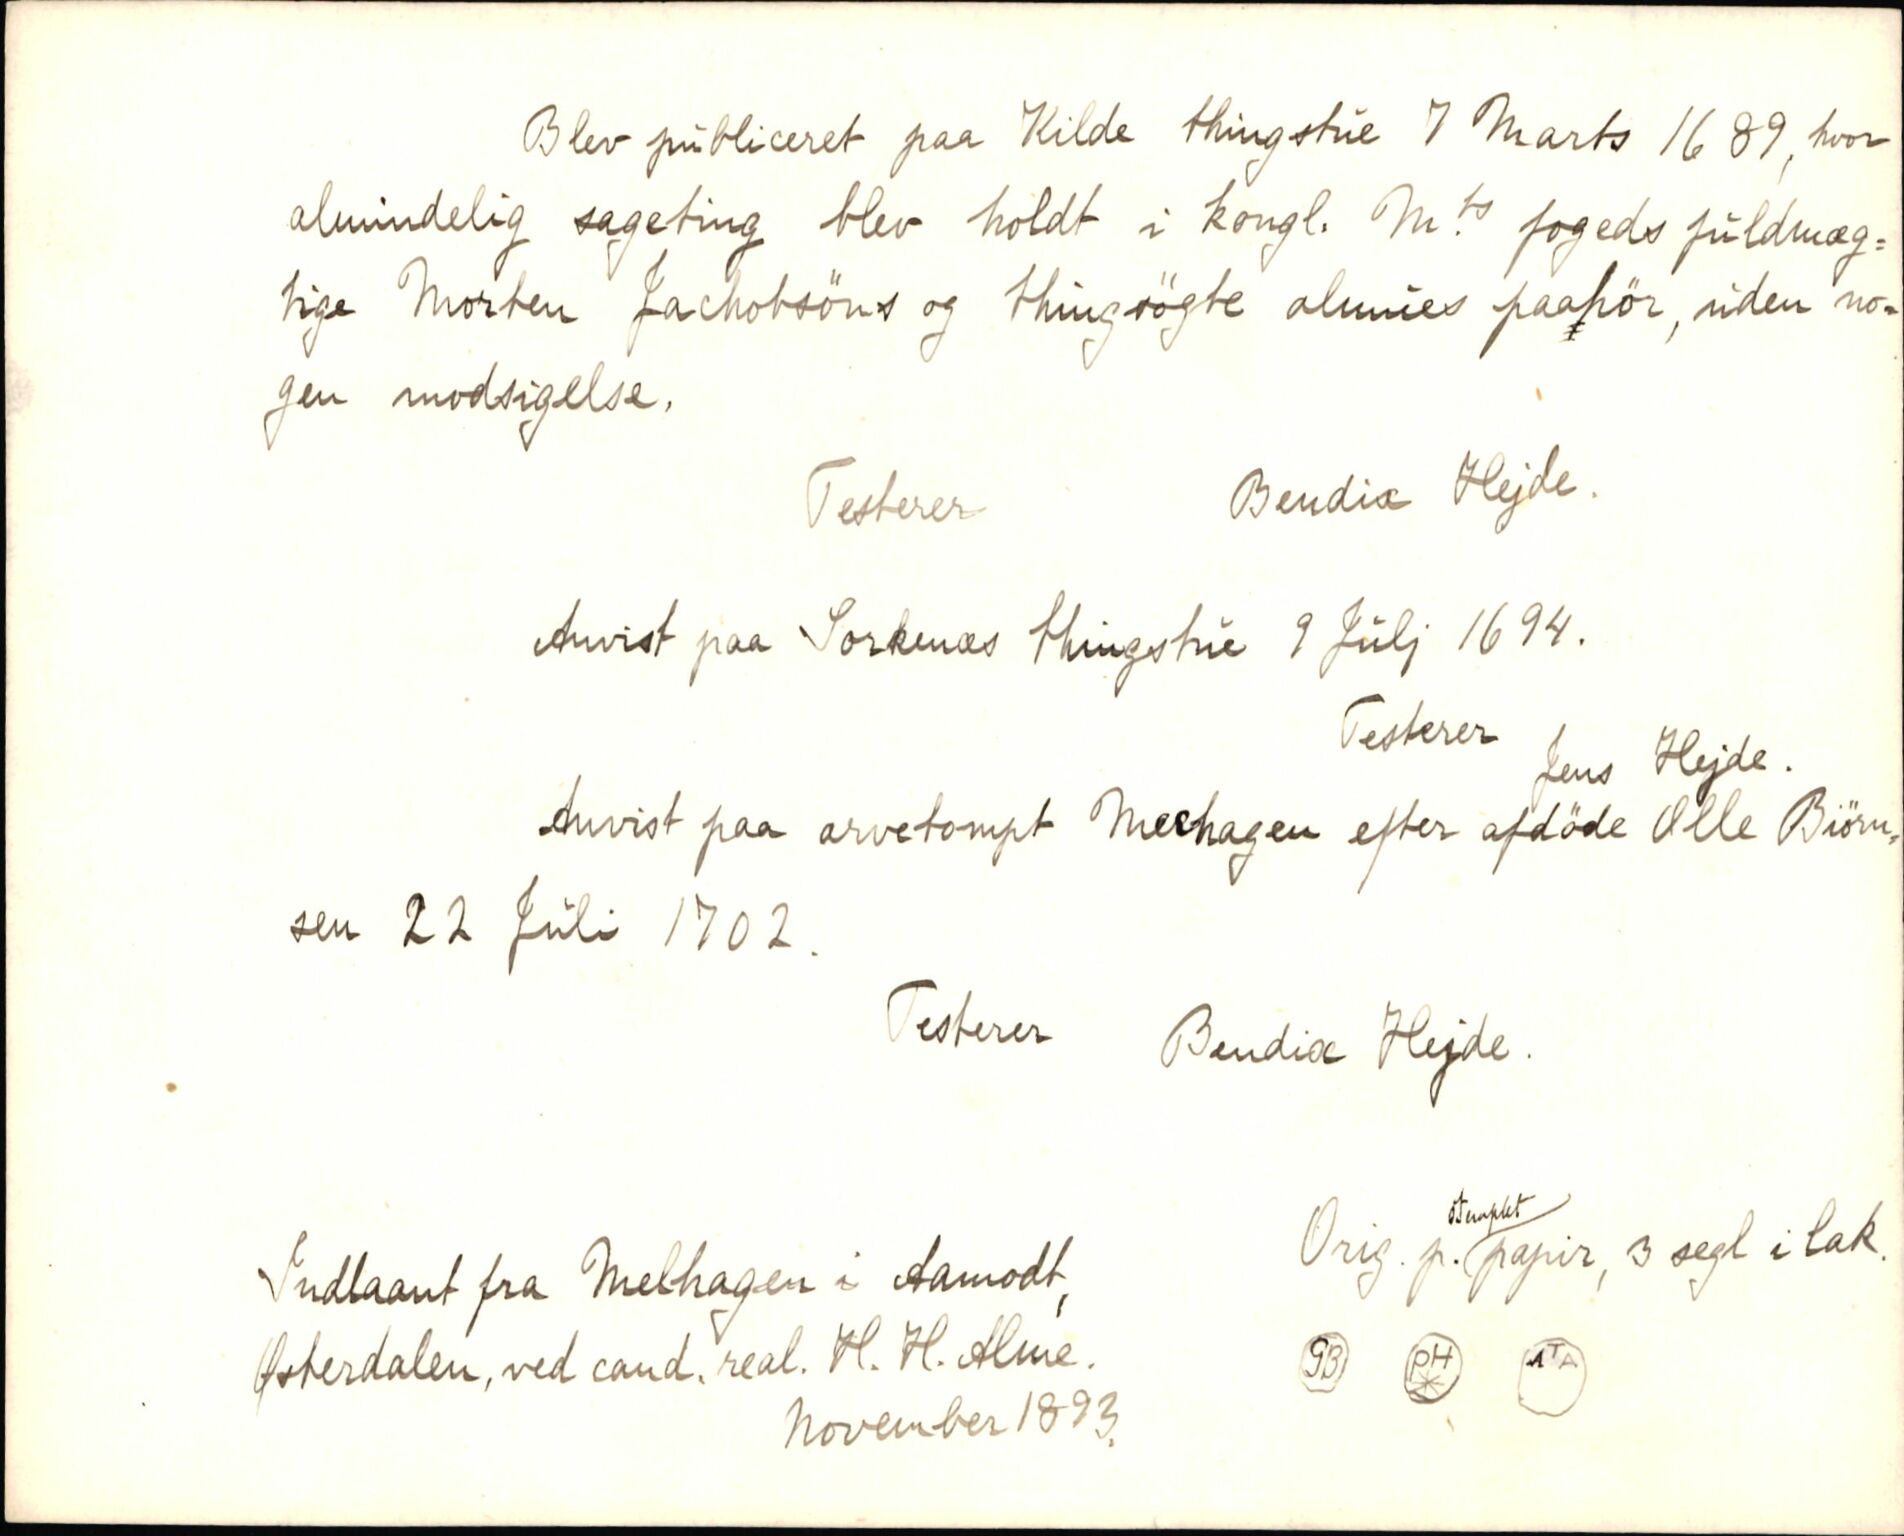 Blev publiceret paa Kilde thingstue 7 Marts 1689, hvor
almindelig sageting blev holdt i kongl. M.ts fogeds fuldmæg=
tige Morten Jachobsöns og thingsögte almues paahör, uden no-
gen modsigelse.
Testerer Bendix Hejde.
Anvist paa Sorkenæs thingstue 9 Julj 1694.
Testerer Jens Hejde.
Anvist paa arvetompt Meehagen efter afdöde Olle Biörn-
sen 22 Juli 1702.
Testerer Bendix Hejde.
Orig. p. stemplet papir, 3 segl i lak.
GB PH ITA
Indlaant fra Melhagen i Aamodt,
Østerdalen, ved cand. real. H. H. Alme.
November 1893.